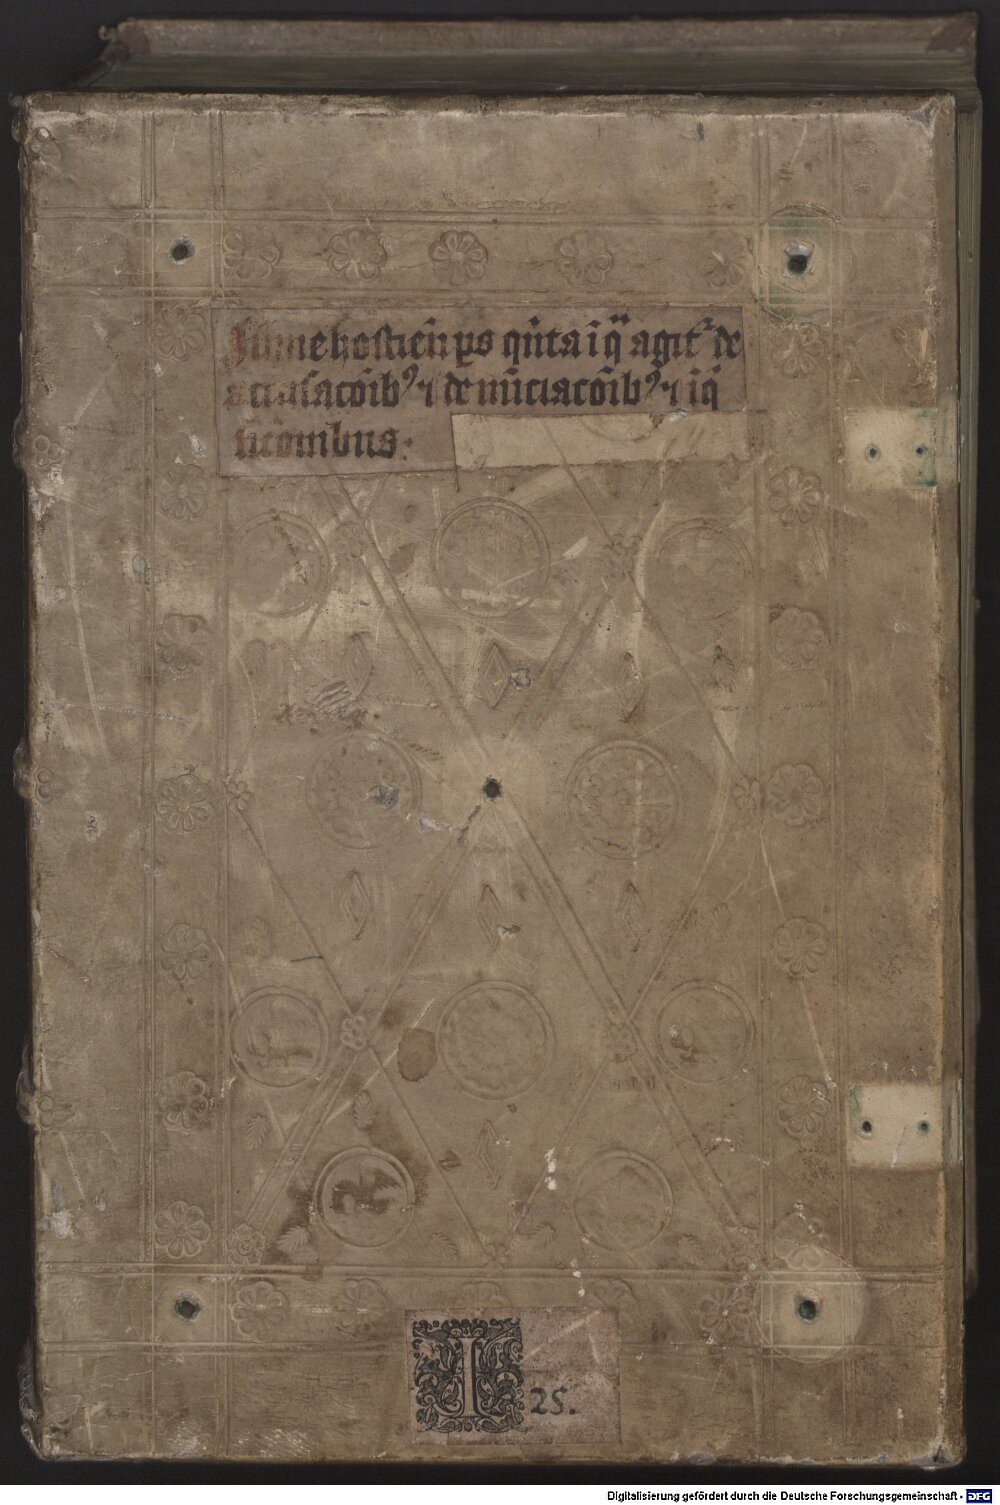 Sūme hostien̄ ꝑs qn̄ta ī qᷓ agit᷑ de
accusacōib⁹ ⁊ de nūciacōib⁹ ⁊ īq̄
sicōnibus :
L
25.
Digitalisierung gefördert durch die Deutsche Forschungsgemeinschaft - DFG